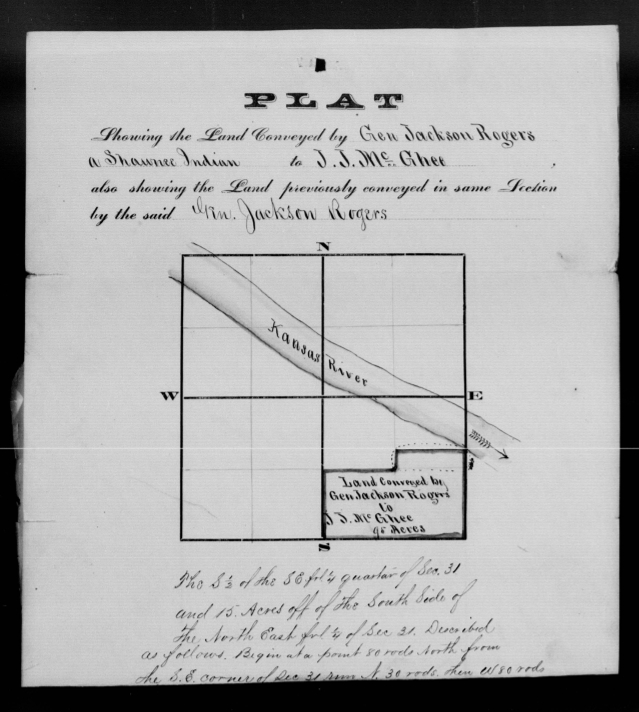 PLAT
Showing the Land Conveyed by Gen Jackson Rogers
a Shawnee Indian to J. J. Mc Ghee
also showing the Land previously conveyed in same Section
by the said Gen. Jackson Rogers
N
Kansas River
W
E
Land Conveyed by
Gen Jackson Rogers
to
J J. Mc Ghee
95 Acres
S
The S ½ of the SE frl ¼ quarter of Sec. 31
and 15. Acres off of the South Side of
the North East frl ¼ of Sec 31. Described
as follows. Begin at a point 80 rods North from
the S.E. corner of Sec 31 run N. 30 rods. then W 80 rods